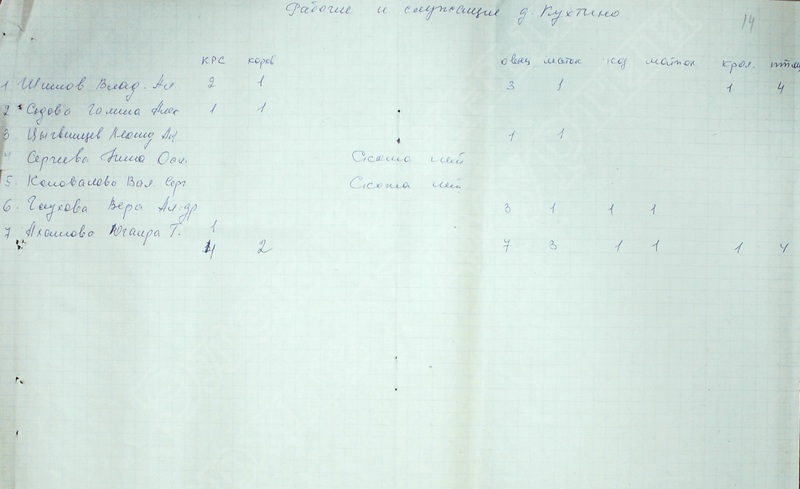 Рабочие и служащие д. Кухтино 14
КРС коров овец маток коз маток крол. птиц
1 Шилов Влад. Ал 2 1 3 1 1 4
2 Седова Галина Алек 1 1
3 Леонид Ал 1 1
4 Сергеева Нина Скота нет
5 Коновалова Вал. Серг Скота нет
6. Глухова Вера Ал-др 3 1 1 1
7 Т. 1
4 2 7 3 1 1 1 4